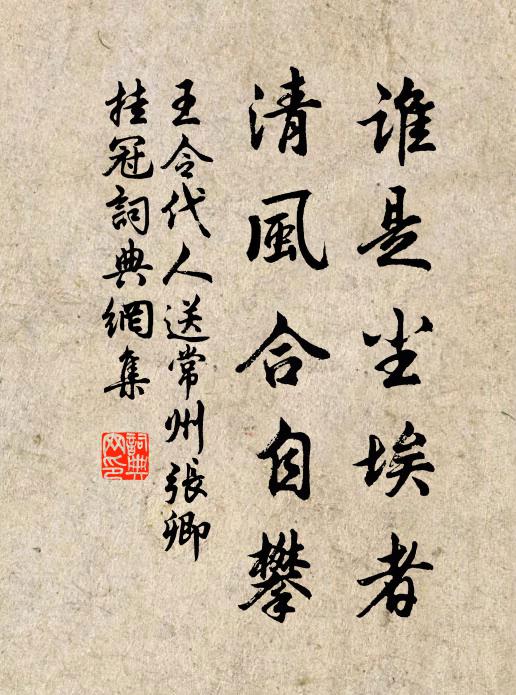 谁是尘埃者
清風合自攀
王令代人送常州張卿
挂冠詞典網集
詞典网印